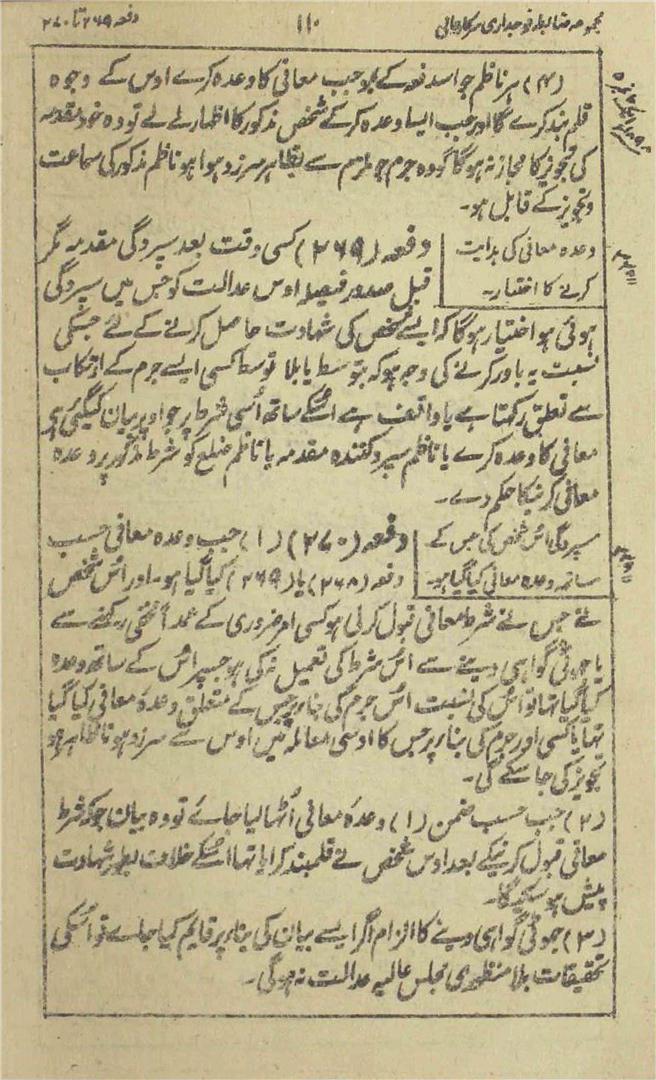 مجموعہ ضابطہ فوجداری سرکارعالی ۱۱۰ دفعہ ۲۶۹ تا ۲۷۰
(۴) ہر ناظم جو اسدفعہ کے بموجب معافی کا وعدہ کرے اوس کے وجوہ
قلمبند کرے گا اور جب ایسا وعدہ کرکے شخص مذکور کا اظہار لے لے تو وہ خود مقدمہ
کی تجویز کا مجاز نہ ہوگا گو وہ جرم جو ملزم سے بظاہر سرزد ہوا ہو ناظم مذکور کی سماعت
و تجویز کے قابل ہو۔
وعدہ معافی کی ہدایت
کرنے کا اختیار۔
دفعہ (۲۶۹) کسی وقت بعد سپردگی مقدمہ مگر
قبل صدور فیصلہ اوس عدالت کو جس میں سپردگی
ہوئی ہو اختیار ہوگا کہ ایسے شخص کی شہادت حاصل کرنے کے لئے جسکی
نسبت یہ باور کرنے کی وجہ ہو کہ بتوسط یا بلا توسط کسی ایسے جرم کے ارتکاب
سے تعلق رکھتا ہے یا واقف ہے اسکے ساتھ اُسی شرط پر جو اوپر بیان کیگئی ہے
معافی کا وعدہ کرے یا ناظم سپرد کنندہ مقدمہ یا ناظم ضلع کو شرط مذکور پر وعدہ
معافی کرنیکا حکم دے۔
سپردگی اس شخص کی جس کے
ساتھ وعدہ معافی کیا گیا ہو۔
دفعہ (۲۷۰) (۱) جب وعدہ معافی حسب
دفعہ (۲۶۸) یا (۲۶۹) کیا گیا ہو۔ اور اس شخص
نے جس نے شرط معافی قبول کرلی ہو کسی امر ضروری کے عمداً مخفی رکھنے سے
یا جھوٹی گواہی دینے سے اُس شرط کی تعمیل نہ کی ہو جسپر اُس کے ساتھ وعدہ
کیا گیا تھا تو اُس کی نسبت اُس جرم کی بناء پر جس کے متعلق وعدہ معافی کیا گیا
تھا یا کسی اور جرم کی بناء پر جس کا اوسی معاملہ میں اوس سے سرزد ہونا ظاہر ہو
تجویز کی جاسکے گی۔
(۲) جب حسب ضمن (۱) وعدہ معافی اُٹھا لیا جائے تو وہ بیان جو کہ شرط
معافی قبول کرنیکے بعد اوس شخص نے قلمبند کرایا تھا اسکے خلاف بطور شہادت
پیش ہوسکیگا۔
(۳) جھوٹی گواہی دینے کا الزام اگر ایسے بیان کی بناء پر قایم کیا جاے تو اُسکی
تحقیقات بلا منظوری مجلس عالیہ عدالت نہ ہوگی۔